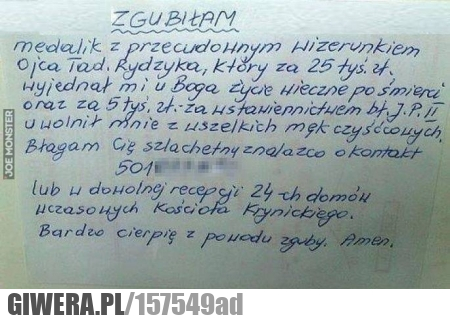 ZGUBIŁAM
medalik z przecudownym wizerunkiem
Ojca Tad. Rydzyka, który za 25 tyś. zł.
wyjednał mi u Boga życie wieczne po śmierci
oraz za 5 tyś. zł. - za wstawiennictwem bł. J.P. II
uwolnił mnie z wszelkich mąk czyśćcowych.
Błagam Cię szlachetny znalazco o kontakt
501
lub w dowolnej recepcji 24-ch domów
wczasowych Kościoła Krynickiego.
Bardzo cierpię z powodu zguby. Amen.
JOE MONSTER
GIWERA.PL/157549ad